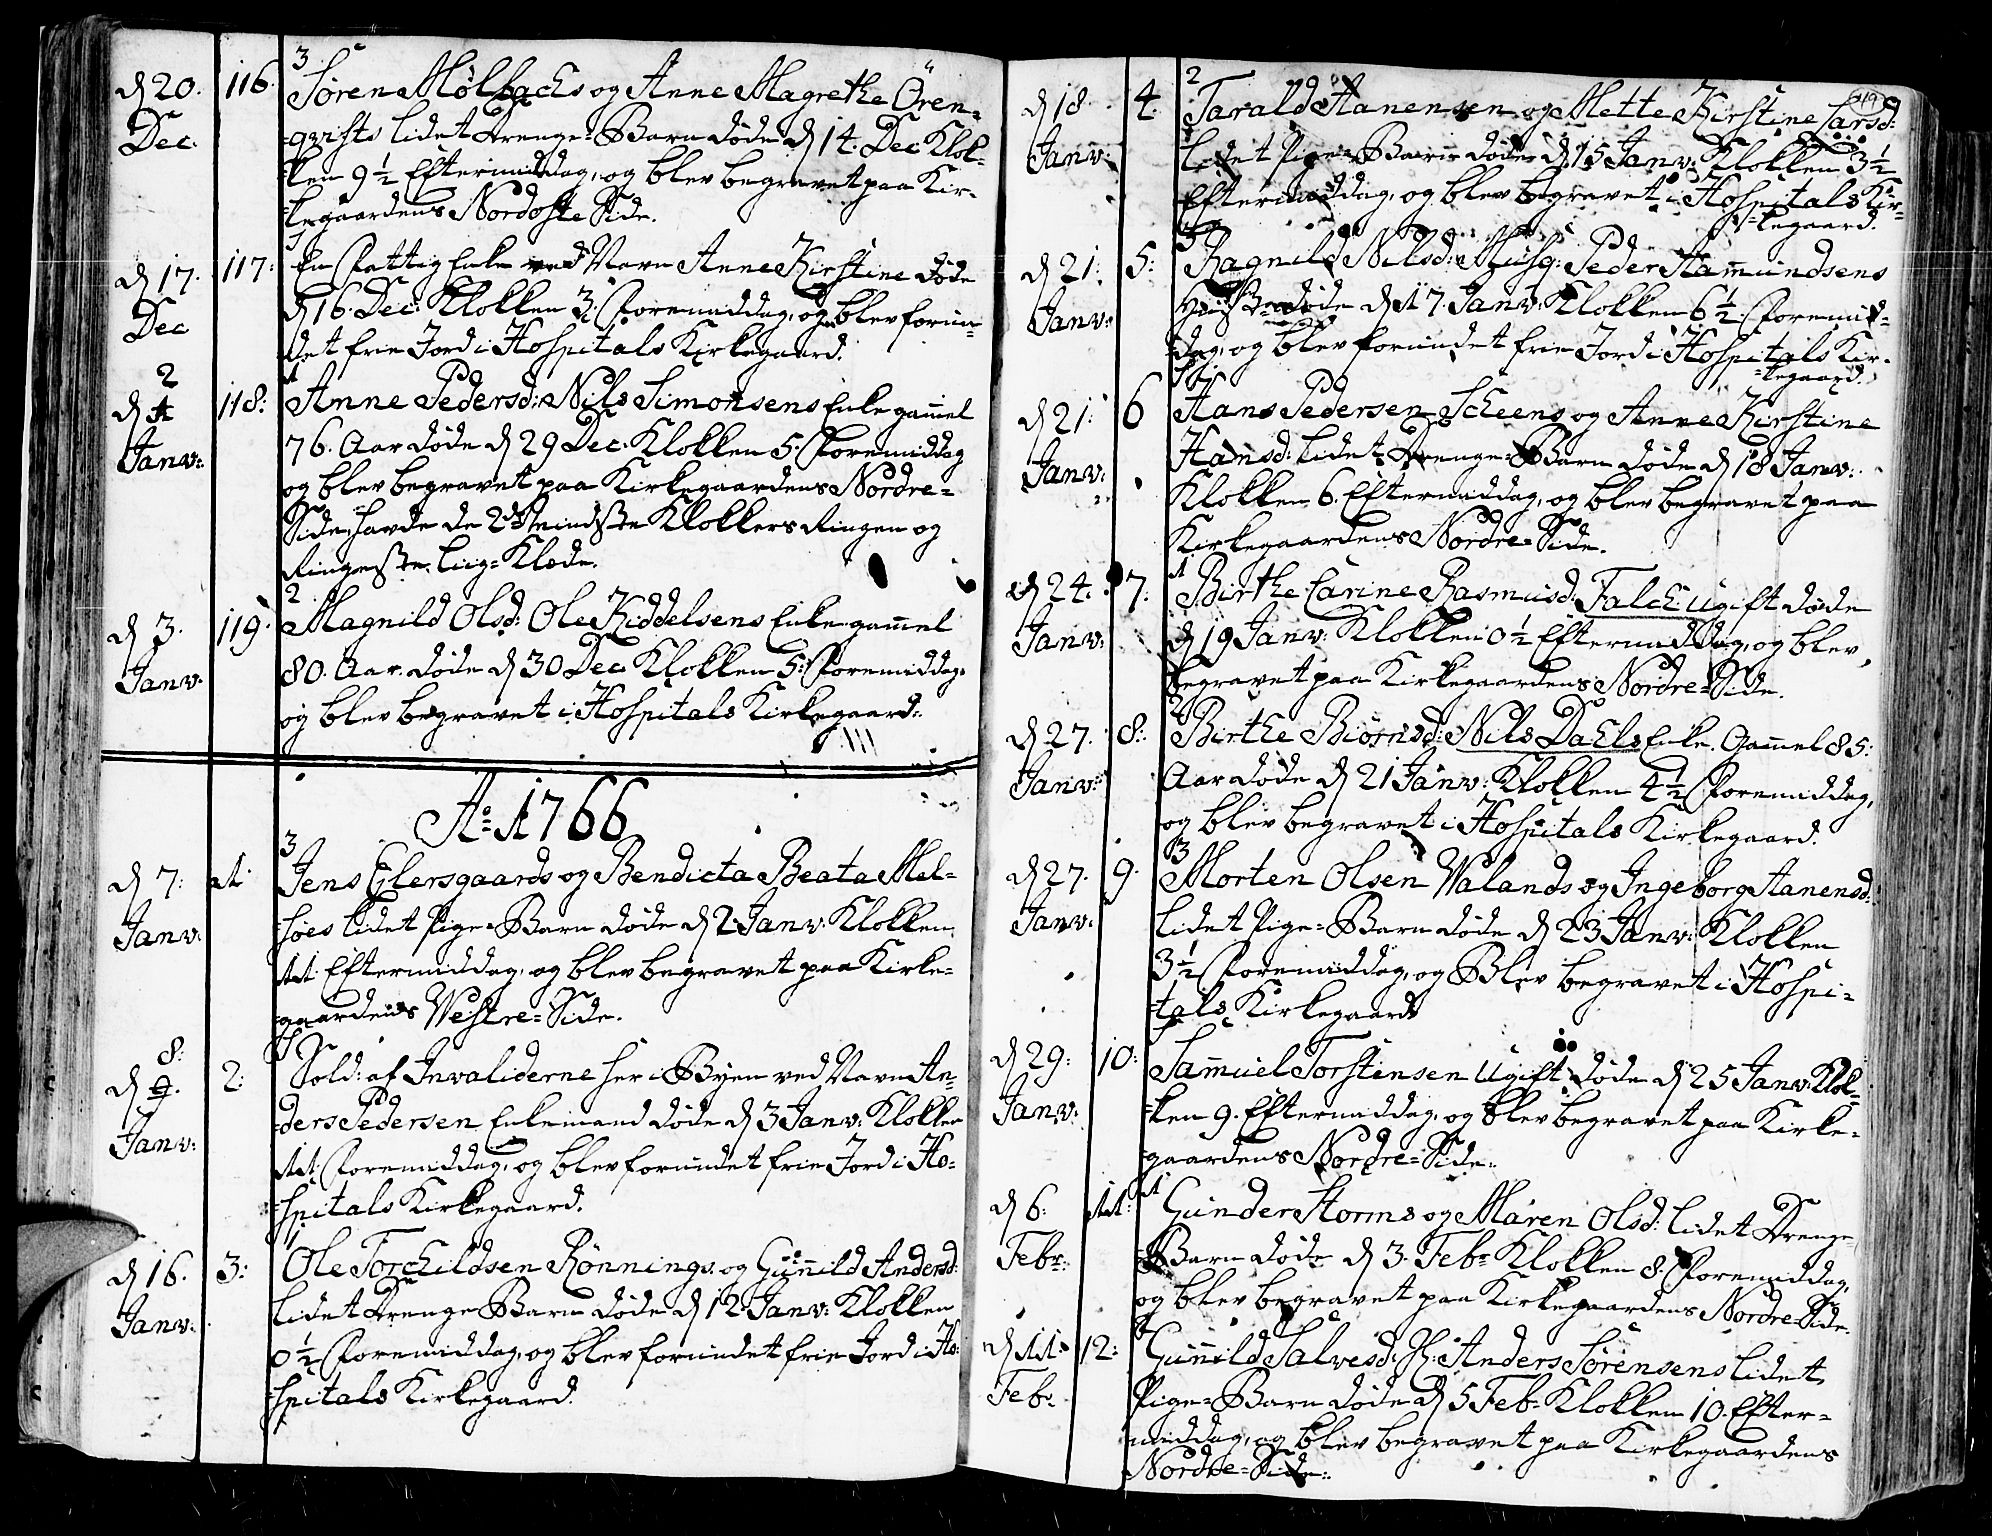 d 20. 116. 3
Dec:
Søren Mølbachs og Anne Magrethe Ören-
-qvists lidet Drenge-Barn døde d 14. Dec Klok-
-ken 9½ Eftermiddag, og blev begravet paa Kir-
-kegaardens Nordoste Side.
d 17. 117: 3
Dec
En Fattig Enke ved Navn Anne Kirstine døde
d 16. Dec: Klokken 3. Formiddag, og blev forun-
-det frie Jord i Hospitals Kirkegaard.
2
d 1 118: 1
Janv:
Anne Pedersd: Nils Simonsens Enke gamel
76. Aar døde d 29 Dec: Klokken 5. Formiddag
og blev begravet paa Kirkegaardens Nordre-
Side, havde de 2de mindste Klokkers Ringen og
Ringeste Liig-Klæde.
d 3. 119: 2
Janv.
Magnild Olsd: Ole Kiddelsens Enke gamel
80. Aar. døde d 30 Dec Klokken 5: Formiddag.
og blev begravet i Hospitals Kirkegaard:
Ao 1766
d 7: 1. 3
Janv:
Jens Elersgaards og Bendicta Beata Mel-
-söes lidet Pige-Barn døde d 2 Janv: Klokken
11. Eftermiddag, og blev begravet paa Kirke-
-gaardens Vestre-Side.
8:
d 2:
Janv:
Sold: af Invaliderne her i Byen ved Navn An-
-ders Pedersen Enkemand døde d 3 Janv: Klokken
11. Formiddag, og blev forundet frie Jord i Ho-
-spitals Kirkegaard.
d 16. 3: 1
Janv:
Ole Torchildsen Rønnings og Gunnild Andersd:
lidet Drenge Barn døde d 12 Janv: Klokken
0½ Formiddag, og blev forundet frie Jord i Ho-
-spitals Kirkegaard.
d 18. 4. 2
Janv:
Tarald Aanensen og Mette Kirstine Larsd:
lidet Pige-Barn døde d 15 Janv: Klokken 3½
Eftermiddag, og blev begravet i Hospitals Kir-
-kegaard.
d 21: 5: 3
Janv:
Ragnild Nilsd: Musq: Peder Aamundsens
døde d 17. Janv: Klokken 6½. Formid-
-dag, og blev forundet frie Jord i Hospitals Kir-
-kegaard.
d 21: 6
Janv:
Hans Pedersen Scheens og Anne Kirstine
Hansd: lidet Drenge-Barn døde d 18 Janv:
Klokken 6. Eftermiddag, og blev begravet paa
Kirkegaardens Nordre-Side.
d 24. 7. 1
Janv:
Birthe Carine Rasmusd: Falch ugift døde
d 19 Janv: Klokken 0½ Eftermiddag, og blev
begravet paa Kirkegaardens Nordre-Side.
d 27. 8: 2
Janv:
Birthe Biörnsd: Nils Dahls Enke. Gammel 85:
Aar døde d 21 Janv: Klokken 4½ Formiddag,
og blev begravet i Hospitals Kirkegaard.
d 27. 9. 3
Janv:
Morten Olsen Walands og Ingeborg Aanensd:
lidet Pige-Barn døde d 23 Janv: Klokken
3½ Formiddag, og Blev begravet i Hospi-
-tals Kirkegaard
d 29: 10:
Janv:
Samuel Torstensen Ugift døde d 25 Janv: Klok-
-ken 9. Eftermiddag, og blev begravet paa Kirke-
gaardens Nordre-Side:
d 6: 11: 1
Febr:
Gunder Storms og Maren Olsd: lidet Drenge-
Barn døde d 3. Febr Klokken 8: Formiddag,
og blev begravet paa Kirkegaardens Nordre-Side.
d 11: 12:
Febr
Gunnild Salvesd: H: Anders Sørensens lidet
Pige-Barn døde d 5 Febr Klokken 10. Efter-
middag, og blev begravet paa Kirkegaardens
Nordre-Side: